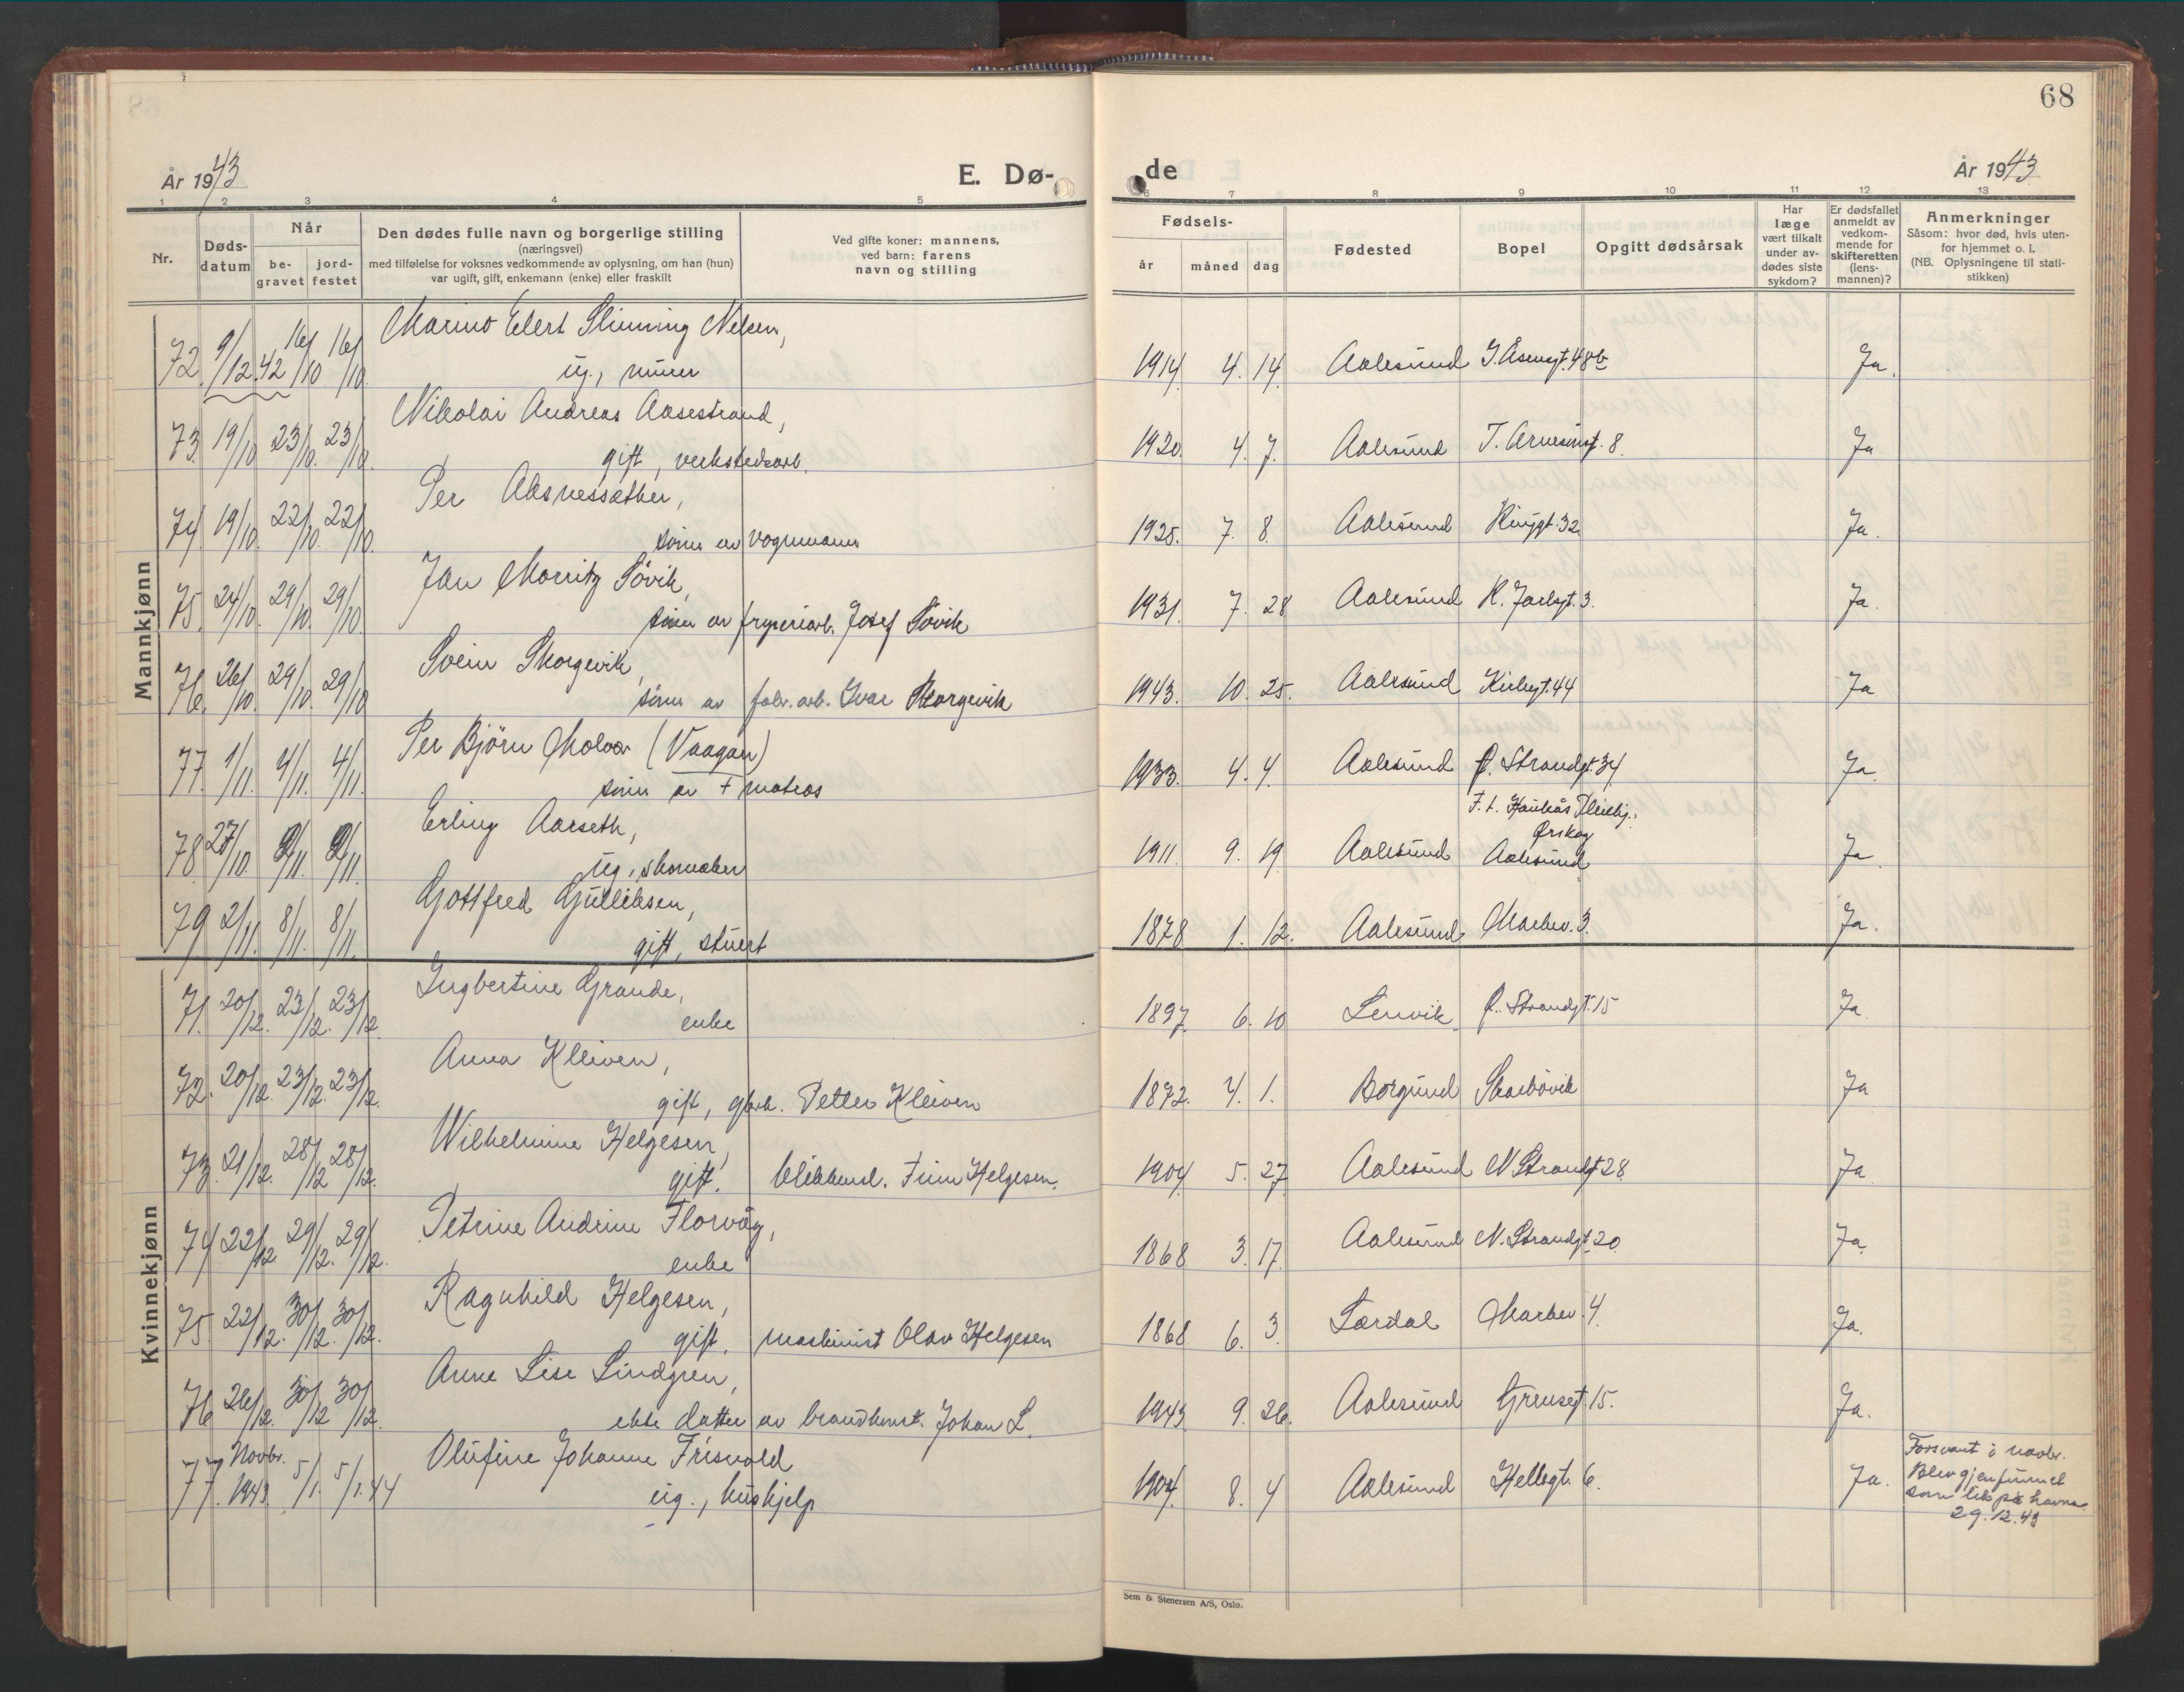 68
År 1943
E. Dø-
de
År 1943
1 2 3 4 5 6 7 8 9 10 11 12 13
Nr.
Døds-
datum
Når
be-
gravet
jord-
festet
Den dødes fulle navn og borgerlige stilling
(næringsvei)
med tilføielse for voksnes vedkommende av oplysning, om han (hun)
var ugift, gift, enkemann (enke) eller fraskilt
Ved gifte koner: mannens,
ved barn: farens
navn og stilling
Fødsels-
år måned dag
Fødested
Bopel
Opgitt dødsårsak
Har
læge
vært tilkalt
under av-
dødes siste
sykdom?
Er dødsfallet
anmeldt av
vedkom-
mende for
skifteretten
(lens-
mannen)?
Anmerkninger
Såsom: hvor død, hvis uten-
for hjemmet o. l.
(NB. Oplysningene til stati-
stikken)
Mannkjønn
72. 9/12.42 16/10 16/10. Marino Elert Slinning Nelsen,
ug., murer
1914 4. 14. Aalesund J. Åsensgt. 48b Ja.
73. 19/10. 23/10. 23/10. Nikolai Andreas Aasestrand,
gift, verkstedsarb.
1920. 4. 7. Aalesund 8. Ja
74. 19/10. 22/10. 22/10. Per Aksnessæther,
sönn av vognmann
1925. 7. 8. Aalesund Ringgt. 32 Ja.
75. 24/10. 29/10. 29/10. Jan Morritz Sövik,
sönn av fryseriarb. Josef Sövik
1931. 7. 28 Aalesund R. Jarlsgt. 3. Ja.
76. 26/10. 29/10. 29/10 Svein Skorgevik,
sönn av fabr. arb. Ivar Skorgevik
1943. 10. 25. Aalesund Kirkegt. 44 Ja
77. 1/11. 4/11. 4/11. Per Björn Molvær (Vaagan)
sönn av + matros
1933. 4. 4. Aalesund Ø. Strandgt. 34 Ja.
78. 27/10. 2/11. 2/11. Erling Aarseth,
ug., skomaker
1911. 9. 19. Aalesund F. t. Haukås Pleiehj.,
Ørskog
Aalesund Ja.
79. 2/11. 8/11. 8/11. Gottfred Gulliksen,
gift, stuert
1878 1. 12. Aalesund Markev. 3. Ja.
Kvinnekjønn
71. 20/12. 23/12. 23/12 Ingbertine Grande,
enke
1897. 6. 10 Lenvik Ø. Strandgt. 15 Ja.
72. 20/12. 23/12. 23/12. Anna Kleiven,
gift, gbrk. Petter Kleiven
1872. 4. 1. Borgund Skarbövik Ja
73. 21/12. 28/12 28/12. Wilhelmine Helgesen,
gift. blikkensl. Finn Helgesen.
1904. 5. 27. Aalesund N Strandgt 28 Ja
74 22/12 29/12. 29/12. Petrine Andrine Florvåg,
enke
1868 3. 17. Aalesund N. Strandgt 20 Ja.
75. 22/12. 30/12. 30/12. Ragnhild Helgesen,
gift, maskinist Olav Helgesen
1868 6. 3. Lærdal Markev. 4. Ja.
76 26/12. 30/12 30/12. Anne Lise Lindgren,
ekte datter av brandkonst. Johan L.
1943 9. 26. Aalesund Grensegt. 15. Ja.
77. Novbr.
1943. 5/1. 5/1.44 Olufine Johanne Frisvold
ug., hushjelp
1904. 8. 4 Aalesund Hellegt. 6. Ja.
Forsvant i novbr.
Blev gjenfunnet
som lik på havna
29.12.43
Sem & Stenersen A/S, Oslo.